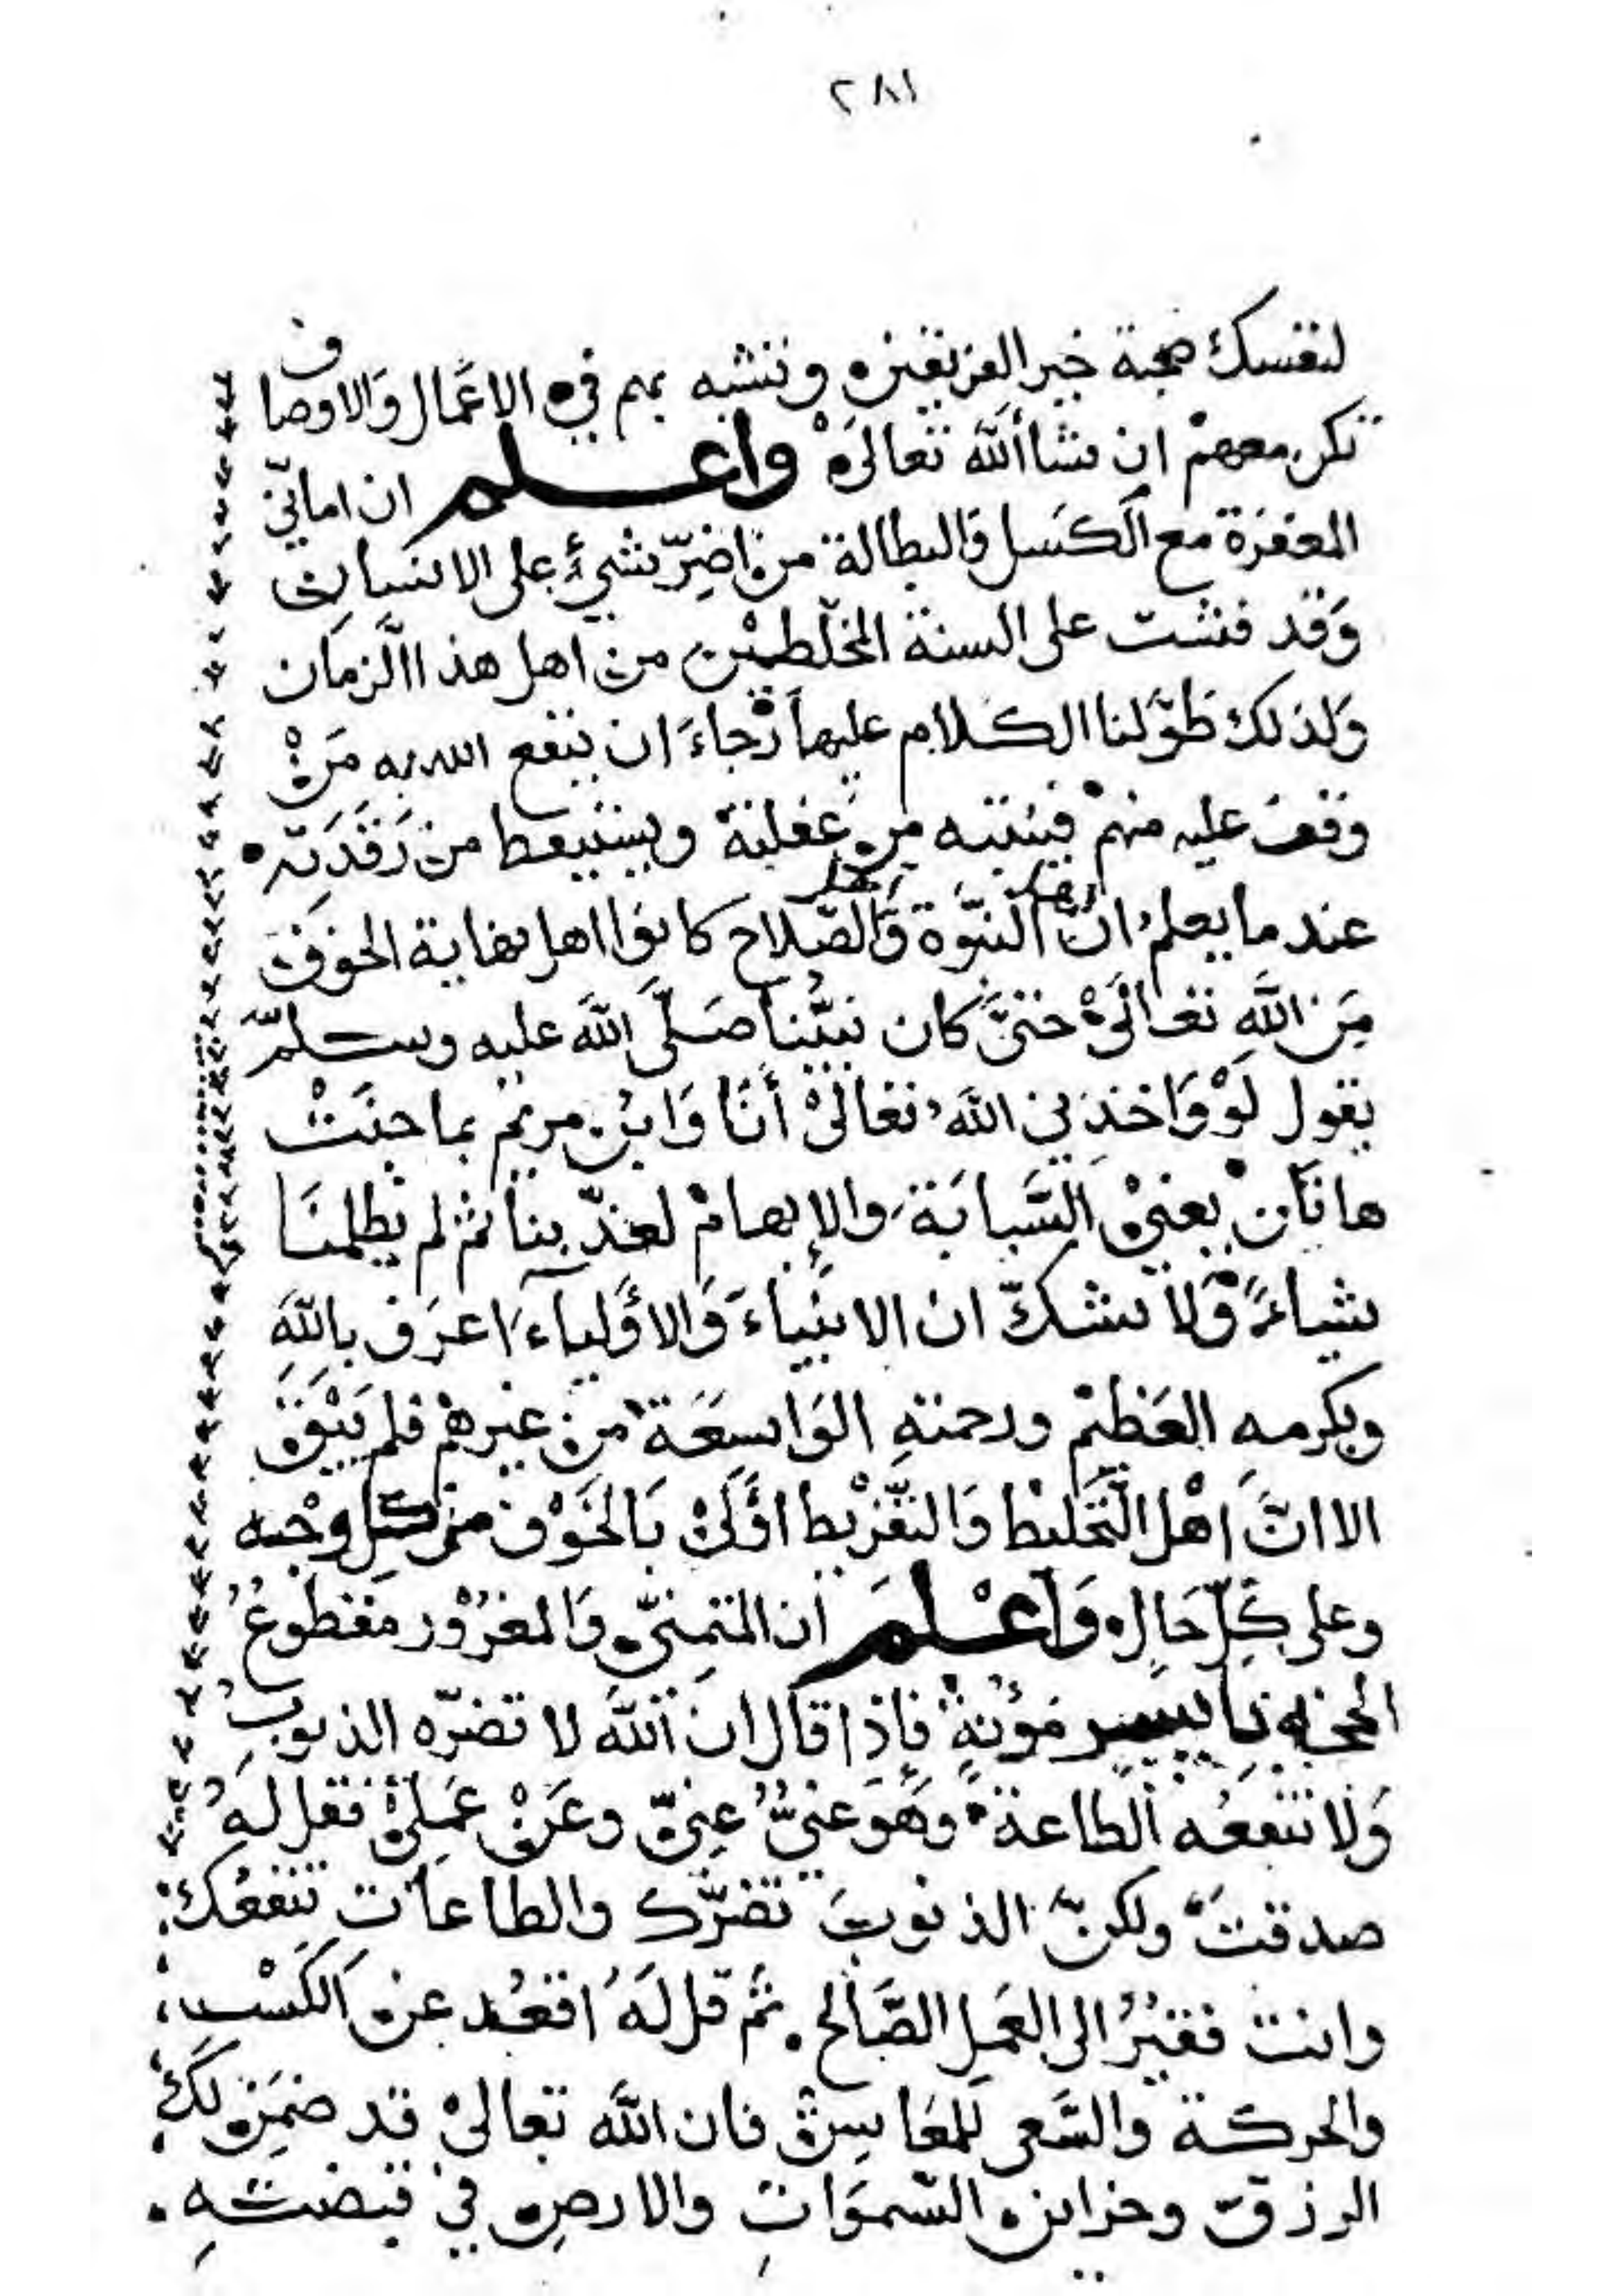 ٢٨١
لنفسك صحبة خير الفريقين وتتشبه بهم في الاعمال والاوصاف
تكن معهم ان شاالله تعالى واعلم ان اماني
المغفرة مع الكسل والبطالة من اضر شيء على الانسان
وقد فشت على السنة المخلطين من اهل هذا الزمان
ولذلك طولنا الكلام عليها رجاء ان ينفع الله به من
وقف عليه منهم فينتبه من غفلته ويستيقظ من رقدته
عند ما يعلم ان اهل النبوة واهل الصلاح كانوا اهل نهاية الخوف
من الله تعالى حتى كان نبينا صلى الله عليه وسلم
يقول لو واخذني الله تعالى أنا وابن مريم بما جنت
هاتان يعني السبابة والإبهام لعذبنا ثم لم يظلمنا
شياء ولا تشك ان الانبياء والاولياء اعرف بالله
وبكرمه العظيم ورحمته الواسعة من غيرهم فلم يبق
الا ان اهل التخليط والتفريط اولى بالخوف من كل وجه
وعلى كل حال واعلم ان المتمني والمغرور مقطوع
الحجه بايسر مؤنة فاذا قال ان الله لا تضره الذنوب
ولا تنفعه الطاعة وهو غني عني وعن عملي فقل له
صدقت ولكن الذنوب تضرك والطاعات تنفعك
وانت فقير الى العمل الصالح . ثم قل له اقعد عن الكسب
والحركة والسعي للمعايش فان الله تعالى قد ضمن لك
الرزق وخزاين السموات والارض في قبضته .